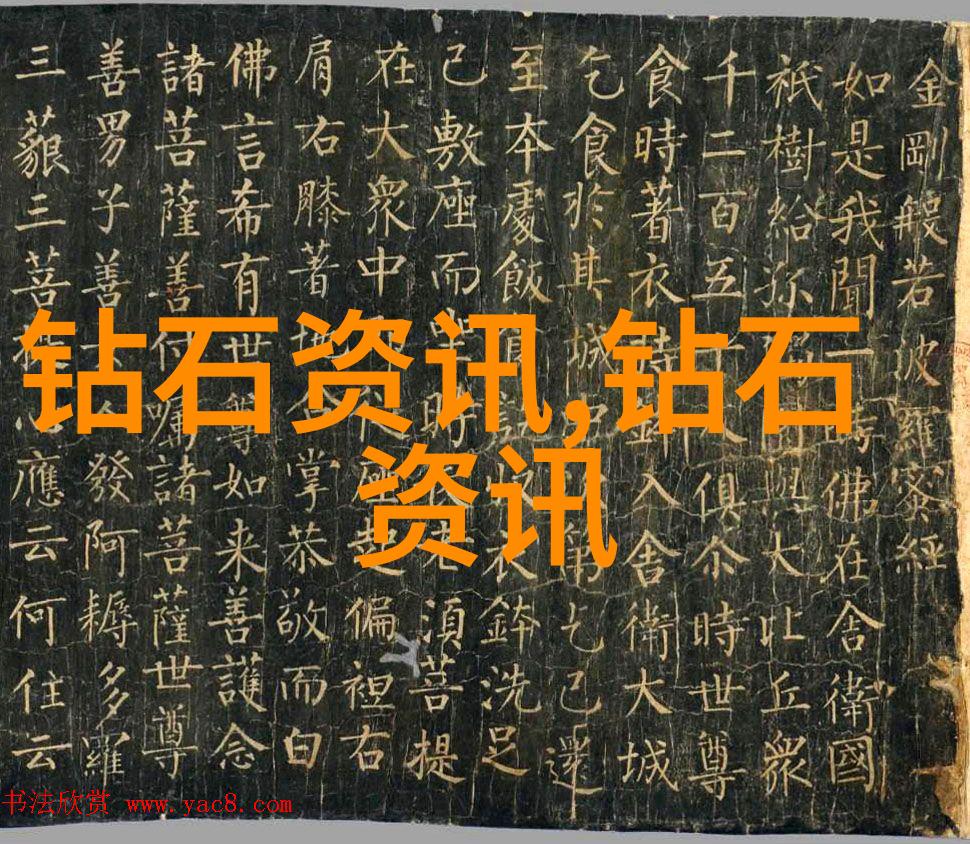 金剛般若波羅蜜經
如是我聞一時佛在舍衛國
祇樹給孤獨園與大比丘眾
千二百五十人俱尒時世尊
食時著衣持鉢入舍衛大城
乞食於其城中第乞已還
至本處飯食訖收衣鉢洗足
已敷座而坐時長老須菩提
在大眾中即從座起偏袒右
肩右膝著地合掌恭敬而白
佛言希有世尊如来善護念
諸菩薩善付囑諸菩薩世尊
善男子善女人發阿耨多羅
三藐三菩提心應云何住云
钻石资讯,钻石
资讯
书法欣赏 www.yac8.com